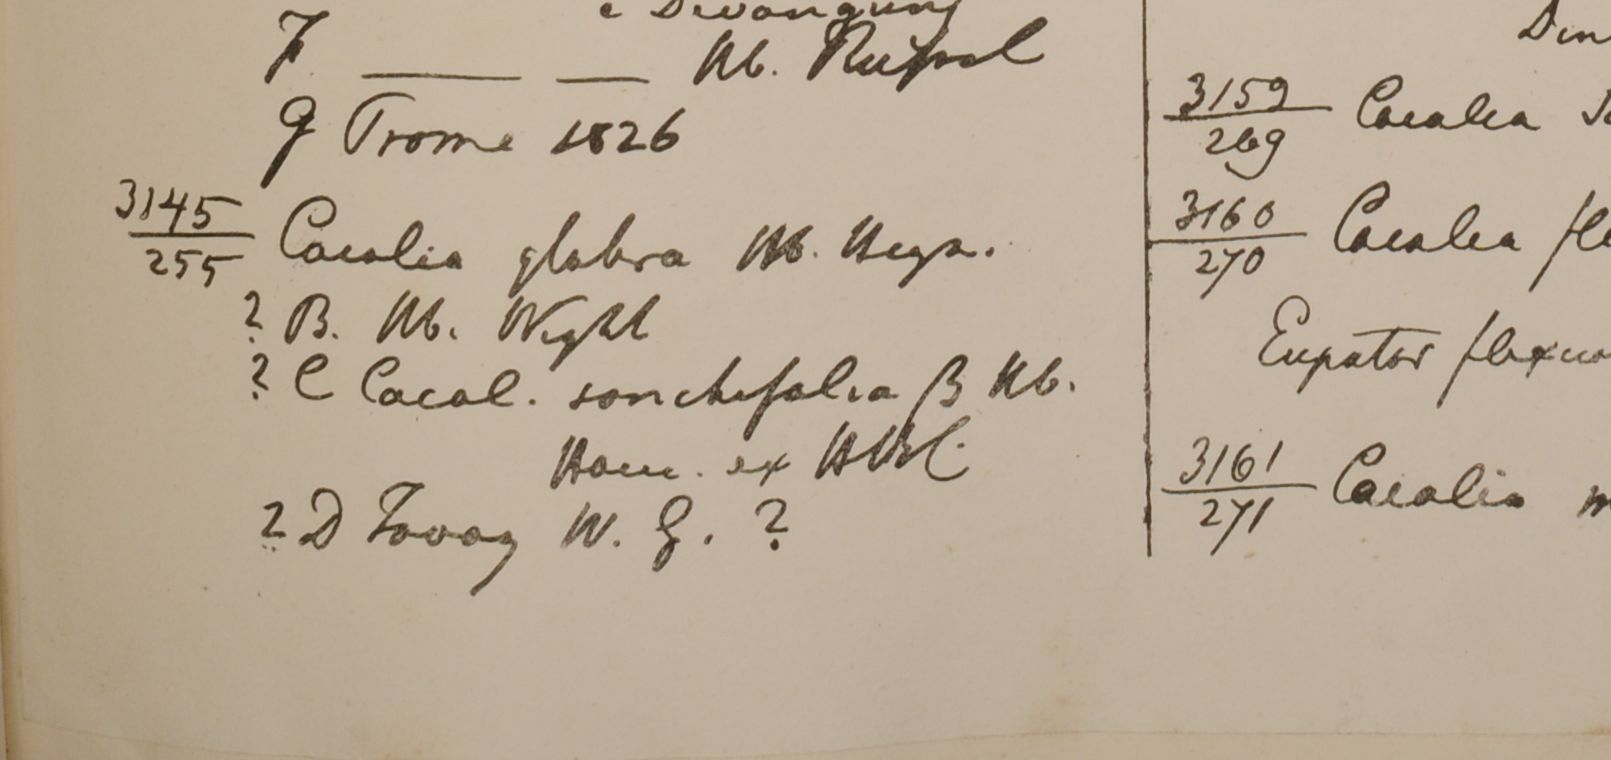 e Devangung
F. ——— —— Hb. Russel
G Prome 1826
3145
255 Cacalia glabra Hb. Heyn.
? B. Hb. Wight
? C Cacal. sonchifolia β Hb.
Ham. ex HBC.
? D Tavoy W. G. ?
3159
269 Cacalia
3160
270 Cacalia fle
Eupator flexuo
3161
271 Cacalia m